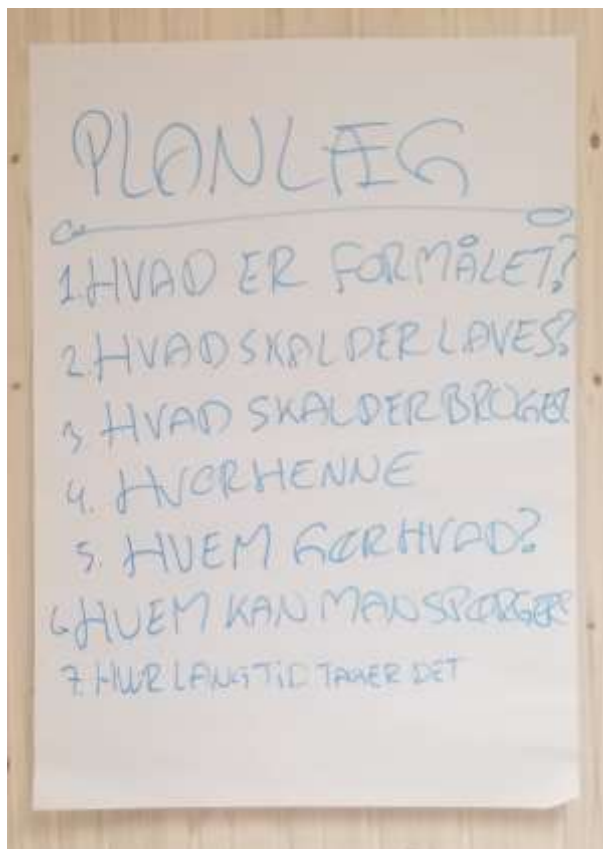 PLANLÆG
1. HVAD ER FORMÅLET?
2. HVAD SKAL DER LAVES?
3. HVAD SKAL DER BRUGES
4. HVORHENNE
5. HVEM GØR HVAD?
6. HVEM KAN MAN SPØRGE?
7. HVOR LANG TID TAGER DET